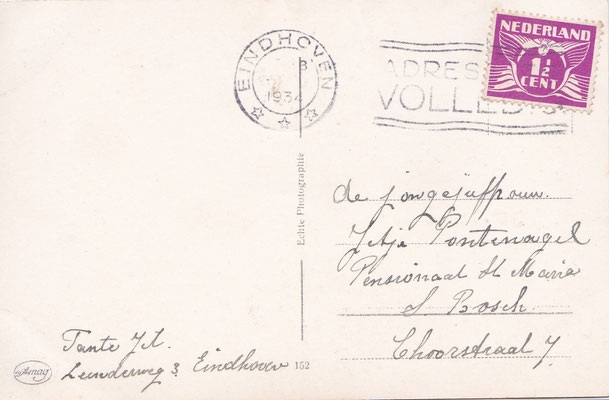 EINDHOVEN
1934
ADRES
VOLLEDIG
NEDERLAND
1½
CENT
Echte Photographie
de jongejuffrouw.
Jetje Pontenagel
Pensionaat St Maria
S Bosch.
Choorstraat 7
Tante Jt.
Leenderweg 3 Eindhoven
Amag
152